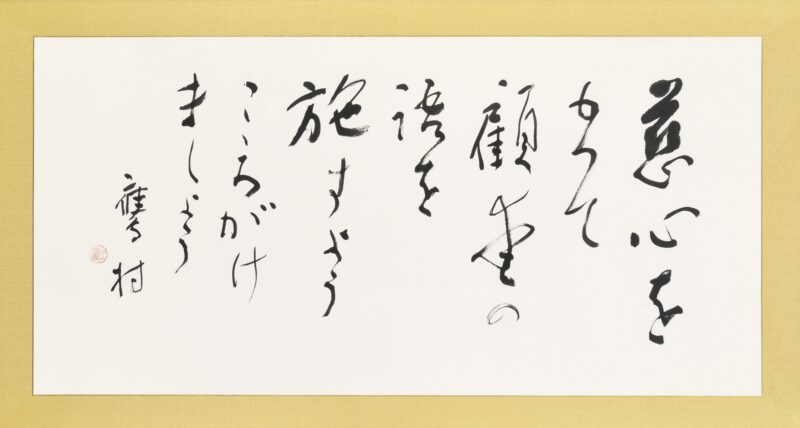 慈心を
もって
顧愛の
語を
施すよう
こころがけ
ましょう
鷹村